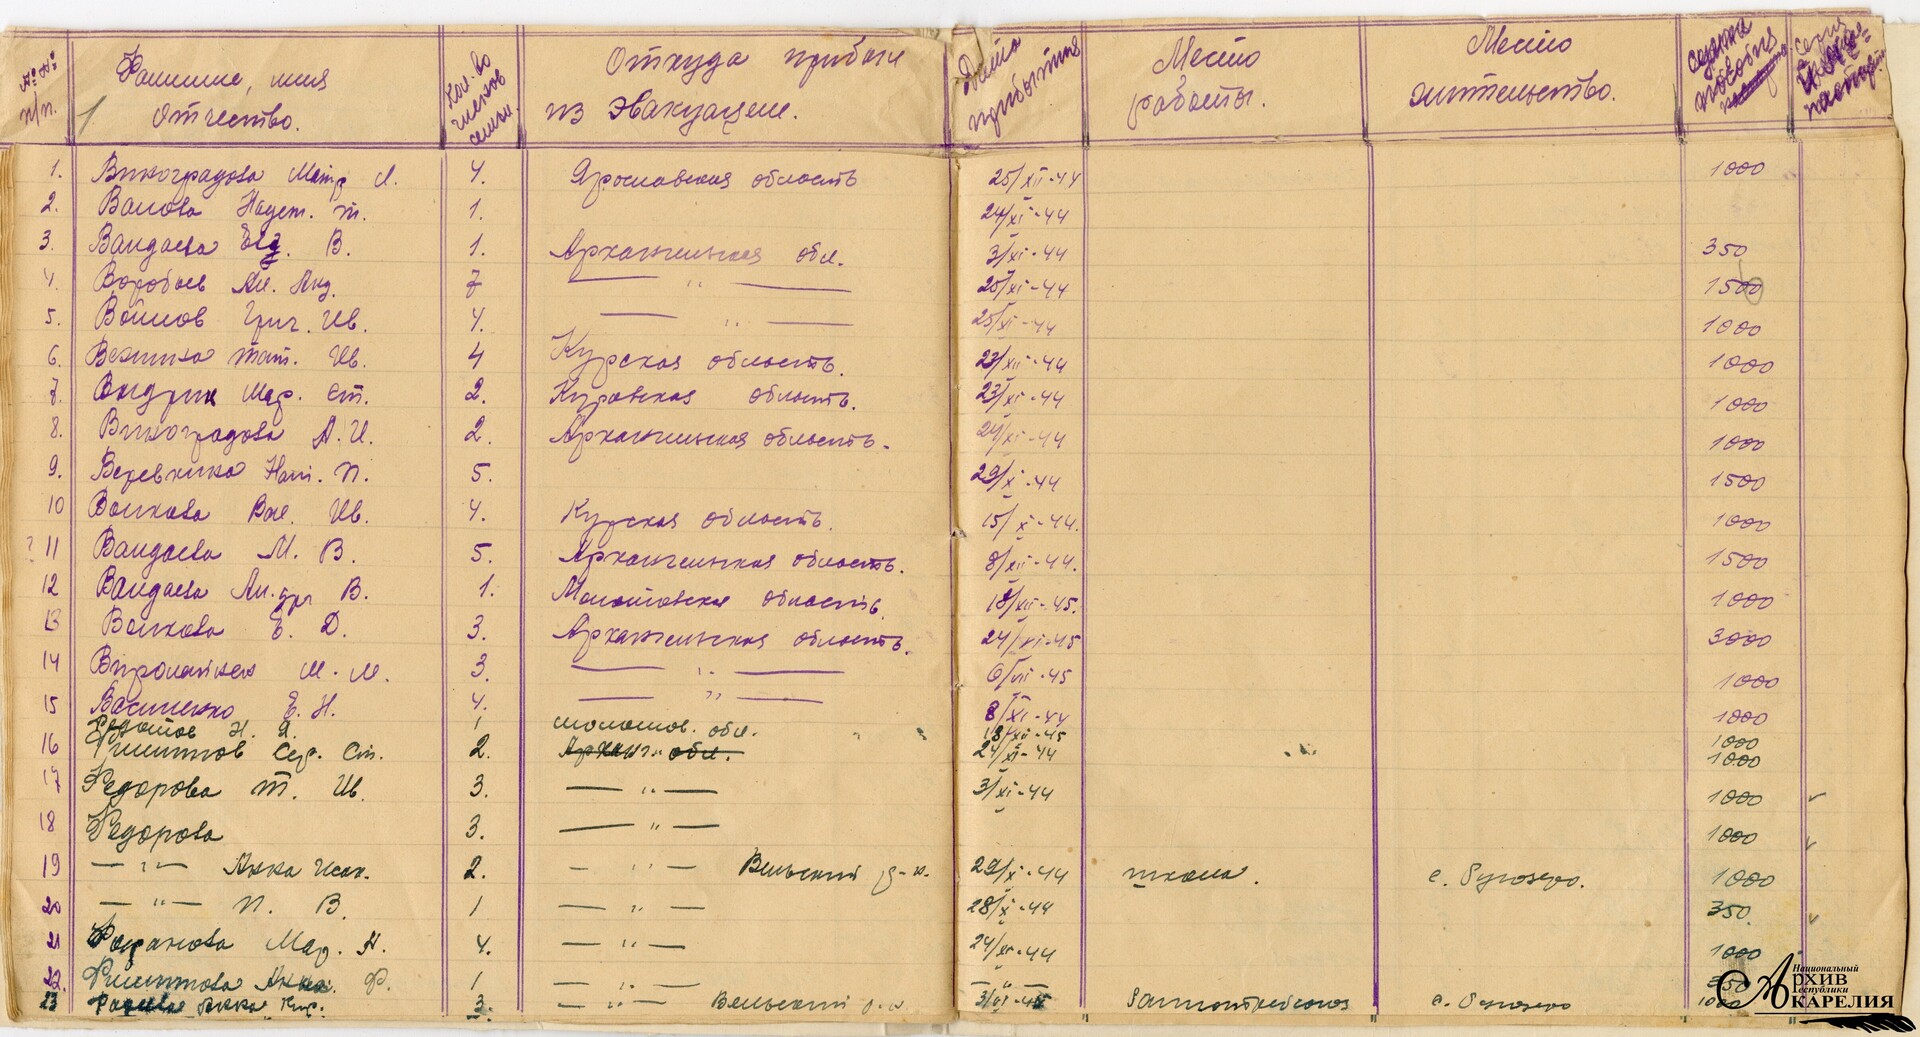 № № п/п. Фамилие, имя отчество. Кол-во членов семьи. Откуда прибыли из эвакуации. Дата прибытия Место работы. Место жительство. Сумма пособия
1. Виноградова Л. 4. Ярославская область 25/XII-44 1000
2. Т. 1. 24/XI-44
3. В. 1. Архангельская обл. 3/XI-44 350
4. Воробьев Ал. Анд. 7 — " — 25/XI-44
5. Григ. Ив. 4. — " — 25/XI-44 1000
6. Тат. Ив. 4 Курская область. 23/XII-44 1000
7. Мар. Ст. 2. область. 23/XI-44 1000
8. Виноградова А. И. 2. Архангельская область. 24/XI-44 1000
9. Веревкина Нат. П. 5. 29/X-44 1500
10 Волкова Ив. 4. Курская область. 15/X-44. 1000
11 М. В. 5. Архангельская область. 8/XII-44. 1500
12 В. 1. Молотовская область. 18/XII-45. 1000
13 Волкова Е. Д. 3. Архангельская область. 24/VI-45 3000
14 Виролайнен М. М. 3. — " — 6/VII-45 1000
15 Е. Н. 4. — " — 8/XI-44 1000
Федотов Н. Я. 1 Молотов. обл. 18/XII-45 1000
16 Филиппов Сер. Ст. 2. Арханг. обл. 24/XI-44 1000
17 Федорова Т. Ив. 3. — " — 3/XI-44 1000
18 Федорова 3. — " — 1000
19 — " — Анна Исак. 2. — " — Вельский р-н. 29/X-44 школа. с. Ругозеро. 1000
20 — " — П. В. 1 — " — 28/X-44 350.
21 Мар. Н. 4. — " — 24/XI-44 1000
22. Филиппова Анна. Ф. 1 — " — — " — 350
23 Анна Кир. 3. — " — Вельский р-н с. Ругозеро
Национальный
Архив
Республики
Карелия